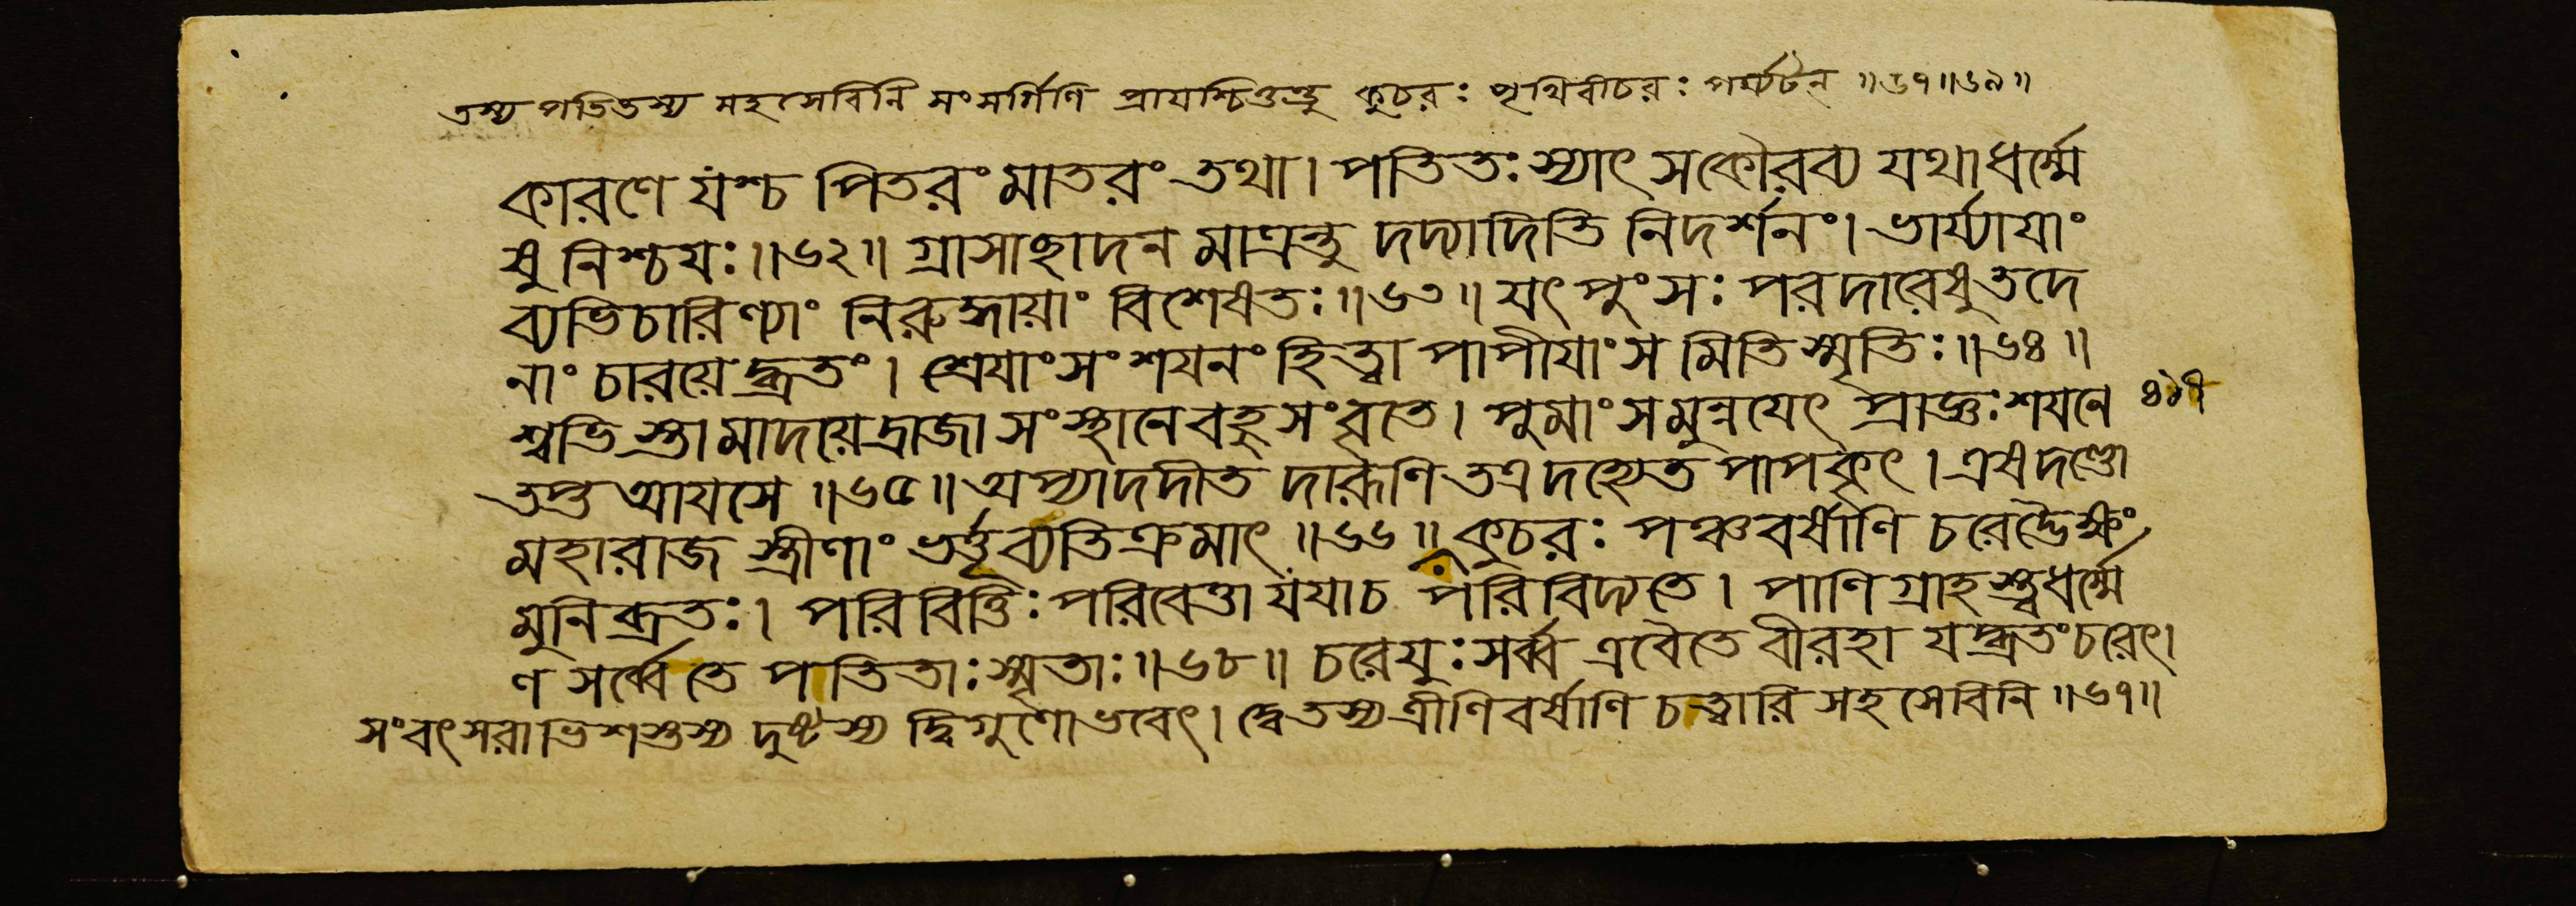 তস্য পতিতস্য সহসেবিনি সংসর্গিণি প্রাযশ্চিত্তন্তু কুচরঃ পৃথিবীচরঃ পর্য্যটন ॥৬৭॥৬৯॥
কারণে যশ্চ পিতরং মাতরং তথা। পতিতঃ স্যাৎ সকৌরব্য যথাধর্ম্মে
ষু নিশ্চযঃ॥৬২॥ গ্রাসাছাদন মাত্রন্তু দদ্যাদিতি নিদর্শনং। ভার্য্যাযাং
ব্যভিচারিণ্যাং নিরুদ্ধায়াং বিশেষতঃ॥৬৩॥ যৎ পুংসঃ পরদারেষু তদে
নাং চারয়েদ্ব্রতং। শ্রেযাংসং শযনং হিত্বা পাপীযাংস মিতি স্মৃতিঃ॥৬৪॥
শ্বভি স্তা মাদায়েদ্রাজা সংস্থানে বহু সংবৃতে। পুমাংস মুন্নযেৎ প্রাজ্ঞঃ শযনে
তপ্ত আযসে ॥৬৫॥ অপ্যাদদীত দারূণি তত্র দহ্যেত পাপকৃৎ। এষ দণ্ডো
মহারাজ স্ত্রীণাং ভর্ত্তৃব্যতিক্রমাৎ ॥৬৬॥ কুচরঃ পঞ্চবর্ষাণি চরেদ্ভৈক্ষং
মুনি ব্রতঃ। পরিবিত্তিঃ পরিবেত্তা যযাচ পরিবিদ্যতে। পাণিগ্রাহ শ্চ্বধর্ম্মে
ণ সর্ব্বেতে পাতিতাঃ স্মৃতাঃ॥৬৮॥ চরেযুঃ সর্ব্ব এবৈতে বীরহা যদ্ব্রতং চরেৎ।
সংবৎসরাভিশস্তস্য দুষ্টস্য দ্বিগুণোভবেৎ। দ্বেতস্য ত্রীণিবর্ষাণি চত্বারি সহসেবিনি ॥৬৭॥